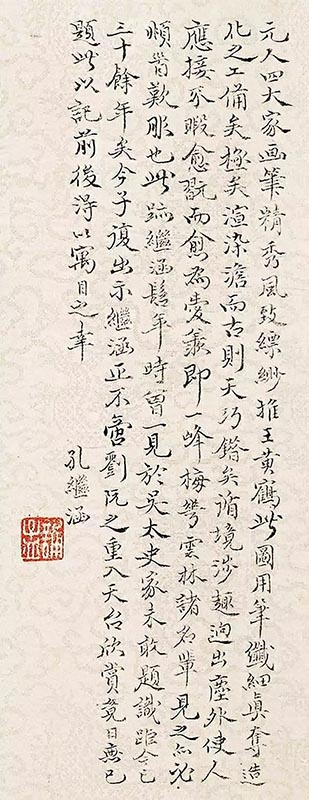 元人四大家画筆精秀風致縹緲推王黃鶴此圖用筆纖細眞奪造
化之工備矣極矣渲染澹而古則天巧錯矣詣境涉趣迥出塵外使人
應接不暇愈翫而愈為愛羨即一峰梅華雲林諸名輩見之亦必
傾首歎服也此跡繼涵髫年時曾一見於吳太史家未敢題識距今已
三十餘年矣今子復出示繼涵正不啻劉阮之重入天台欣賞竟日無已
題此以記前後得以寓目之幸
孔繼涵